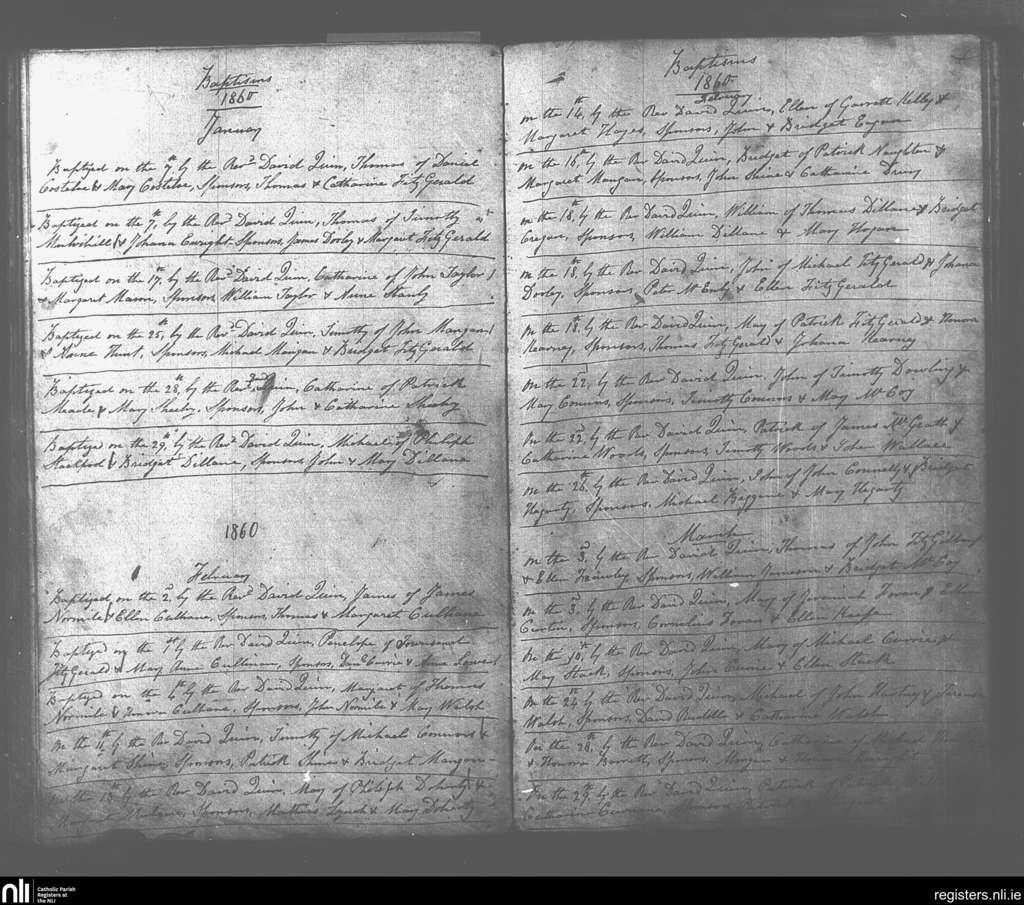 Baptisms
1860
January
Baptized on the 7th by the Revd David Quin, Thomas of Daniel
Costeloe & Mary Costeloe, Sponsors, Thomas & Catharine FitzGerald
Baptized on the 7th, by the Revd David Quin, Thomas of Timothy
& Johana Enright Sponsors, James Dooley & Margaret FitzGerald
Baptized on the 17th, by the Revd David Quin, Catharine of John Taylor
& Margaret Mason, Sponsors William Taylor & Anne Stanly
Baptized on the 25th, by the Revd David Quin, Timothy of John Mangan
& Hunt, Sponsors, Michael Mangan & Bridget FitzGerald
Baptized on the 28th, by the Revd D Quin, Catharine of Patrick
Meade & Mary Sheehy, Sponsors, John & Catharine Sheehy
Baptized on the 29th by the Revd David Quin, Michael of Philiph
Stackpool & Bridget Dillane, Sponsors John & Mary Dillane
1860
Februay
Baptized on the 2d by the Revd David Quin, James of James
Normile & Ellen Culhane, Sponsors, Thomas & Margaret Culhane
Baptized on the by the Rev David Quin, Penelope of Townsend
FitzGerald & Mary Anne Cullinan, Sponsors, Currie & Anne
Baptized on the 4th by the Rev David Quin, Margaret of Thomas
Normile & Culhane, Sponsors, John Normile & Mary Walsh
On the 11th by the Rev David Quin, Timothy of Michael Connors &
Margaret Shine, Sponsors, Patrick Shine & Bridget Mangan
On the 13th by the Rev David Quin, Mary of Philiph Doherty &
Sponsors, Mathias Lynch & Mary Doherty
Baptisms
1860
Februay
On the 14th, by the Rev David Quin, Ellen of Garrett Kelly &
Margaret Hayes, Sponsors, John & Bridget Eagan
On the 16th by the Rev David Quin, Bridget of Patrick Naughton &
Margaret Mangan, Sponsors, John Shine & Catharine
On the 18th, by the Rev David Quin, William of Thomas Dillane & Bridget
Cregan, Sponsors, William Dillane & Mary Hogan
On the 18th, by the Rev David Quin, John of Michael FitzGerald & Johana
Dooley, Sponsors, Peter & Ellen FitzGerald
On the 18th, by the Rev David Quin, Mary of Patrick FitzGerald & Honora
Kearney, Sponsors, Thomas FitzGerald & Johana Kearney
On the 22d, by the Rev David Quin, John of Timothy Dowling &
Mary Connors, Sponsors, Timothy Connors & Mary McCoy
On the 22d, by the Rev David Quin, Patrick of James McGrath &
Catharine Woods, Sponsors, Timothy Woods & John Wallace
On the 26th, by the Rev David Quin, John of John Connelly & Bridget
Hegarty, Sponsors, Michael & Mary Hegarty
March
On the 3d, by the Rev David Quin, Thomas of John FitzGibbon
& Ellen Sponsors, William Jameson & Bridget McCoy
On the 3d, by the Rev David Quin, Mary of Jeremiah & Ellen
Curtin, Sponsors, Cornelius & Ellen
On the 10th, by the Rev David Quin, Mary of Michael Currie &
Mary Stack, Sponsors, John Currie & Ellen Stack
On the 24th by the Rev David Quin, Michael of John &
Walsh, Sponsors, David & Catharine Walsh
On the 28th, by the Rev David Quin, Catharine of Michael
& Honora Barrett, Sponsors, Morgan &
On the 29th, by the Rev David Quin, Patrick of
Catharine Sponsors
nli
Catholic Parish
Registers at
the NLI
registers.nli.ie